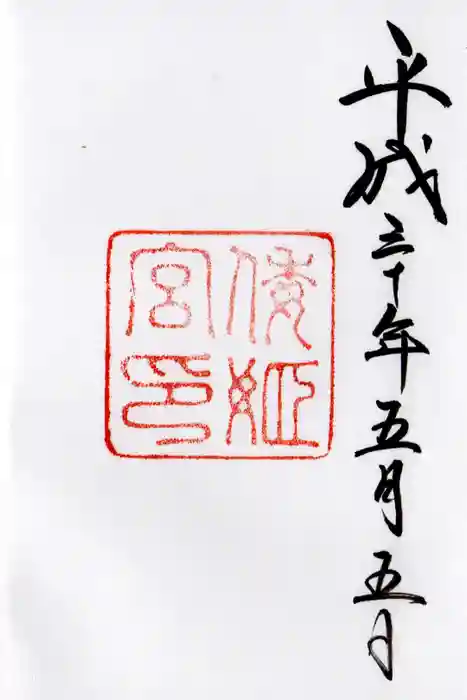 平成三十年五月五日
倭姫
宮印